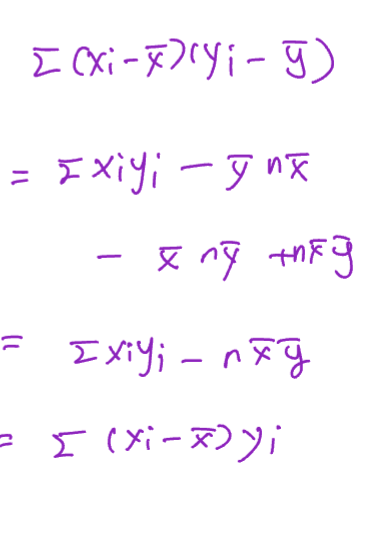 Σ (xi - x̄)(yi - ȳ)
= Σ xiyi - ȳ n x̄
- x̄ n ȳ + n x̄ ȳ
= Σ xiyi - n x̄ ȳ
= Σ (xi - x̄) yi